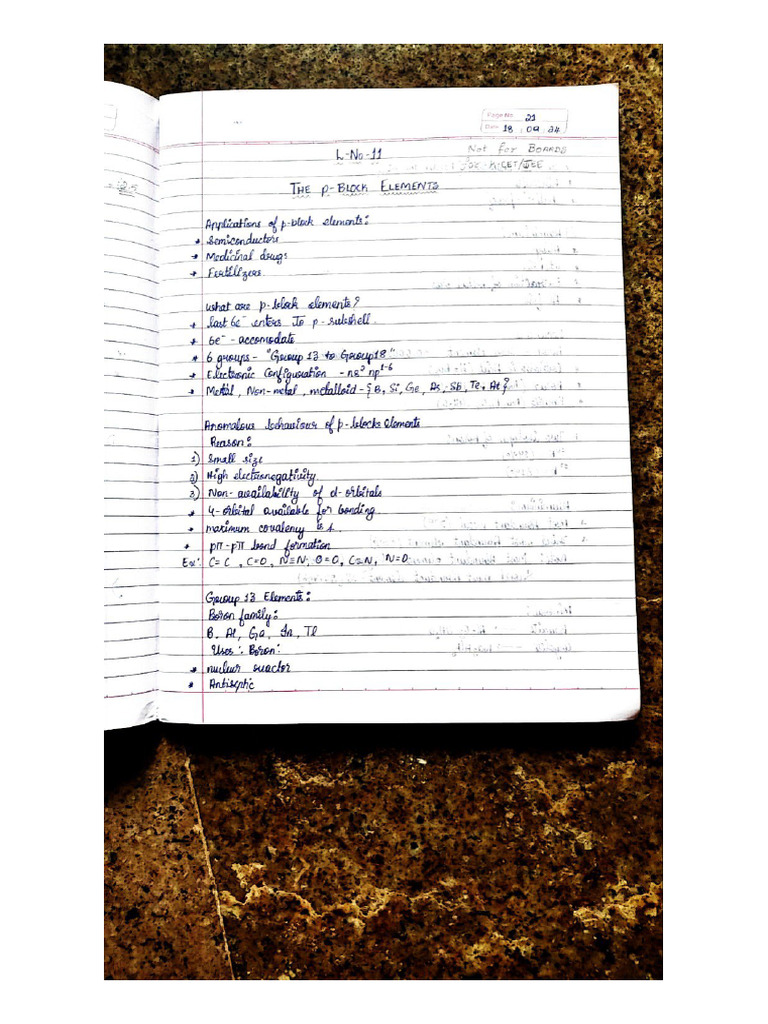 Page No. 21
Date 18 09 24
L-No-11
Not for BOARDS
FOR K-CET/JEE
= 12.5
THE P-BLOCK ELEMENTS
Applications of p-block elements:
* Semiconductors
* Medicinal drugs
* Fertilizers
What are p-block elements?
* last 6e⁻ enters to p-subshell.
* 6e⁻ - accomodate
* 6 groups - "Group 13 to Group 18"
* Electronic Configuration - ns² np¹⁻⁶
* Metal, Non-metal, metalloid - {B, Si, Ge, As, Sb, Te, At}
Anomalous behaviour of p-blocks elements
Reason:
1) Small size
2) High electronegativity.
3) Non-availability of d-orbitals
* 4-orbital available for bonding.
* maximum covalency is 4.
* pπ-pπ bond formation
Ex: C=C, C=O, N≡N, O=O, C≡N, N=O
Group 13 Elements:
Boron family:
B, Al, Ga, In, Tl
Uses: Boron:
* nuclear reactor
* Antiseptic